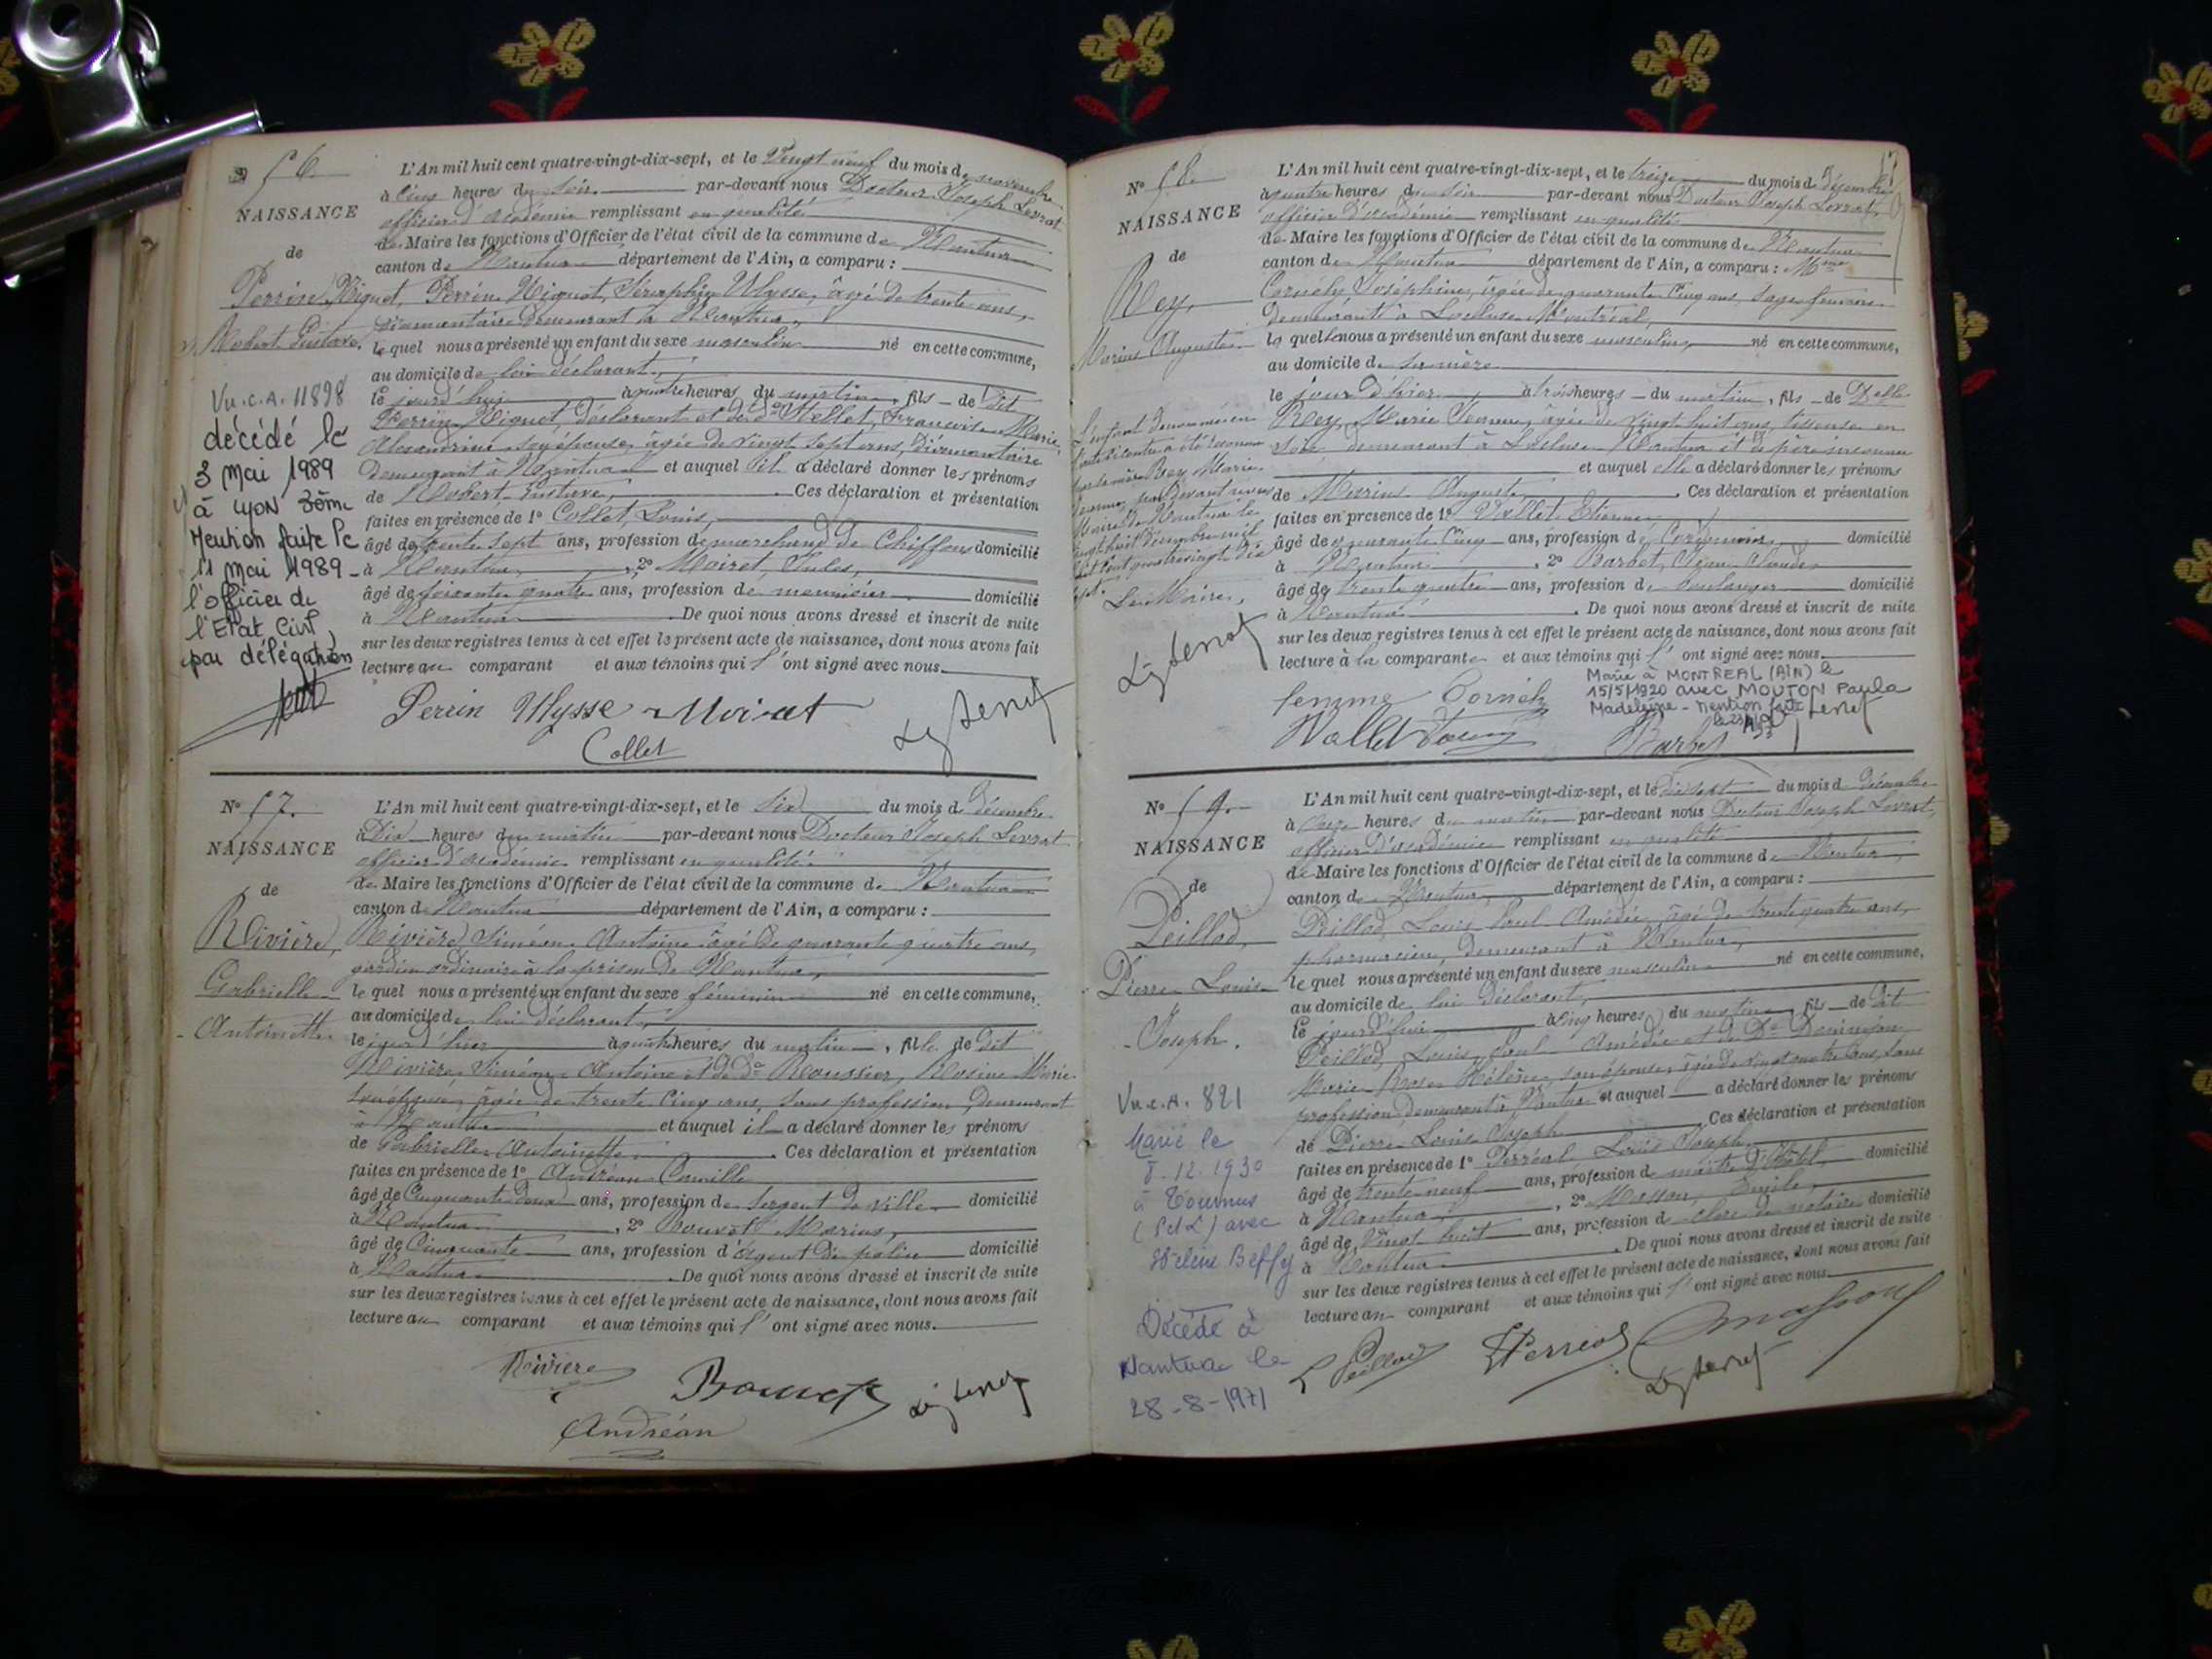 56
NAISSANCE
de
Perrin Niquet,
Robert Gustave.
Vu.C.A. 11898
décédé le
3 Mai 1989
à LYON 3ème
Mention faite le
11 Mai 1989 -
l'officier de
l'Etat Civil,
par délégation
L'An mil huit cent quatre-vingt-dix-sept, et le Vingt neuf du mois de novembre
à Cinq heures du Soir par-devant nous Docteur Joseph Levrat
officier d'académie remplissant en qualité
de Maire les fonctions d'Officier de l'état civil de la commune de Nantua
canton de Nantua département de l'Ain, a comparu :
Perrin Niquet, Séraphin Ulysse, âgé de trente ans,
diamantaire demeurant à Nantua,
lequel nous a présenté un enfant du sexe masculin né en cette commune,
au domicile de lui déclarant,
le jourd'hui à quatre heures du matin, fils de dit
Perrin Niquet, déclarant et de De Mellet, Françoise Marie
Alexandrine son épouse, âgée de vingt sept ans, diamantaire
demeurant à Nantua et auquel il a déclaré donner les prénoms
de Robert Gustave, Ces déclaration et présentation
faites en présence de 1° Collet, Louis,
âgé de trente sept ans, profession de marchand de chiffons domicilié
à Nantua, 2° Moiret, Jules,
âgé de soixante quatre ans, profession de menuisier domicilié
à Nantua De quoi nous avons dressé et inscrit de suite
sur les deux registres tenus à cet effet le présent acte de naissance, dont nous avons fait
lecture au comparant et aux témoins qui l'ont signé avec nous.
Perrin Ulysse Moiret
Collet
N° 57.
NAISSANCE
de
Rivière,
Gabrielle
Antoinette
L'An mil huit cent quatre-vingt-dix-sept, et le Six du mois de décembre
à Dix heures du matin par-devant nous Docteur Joseph Levrat
officier d'académie remplissant en qualité
de Maire les fonctions d'Officier de l'état civil de la commune de Nantua
canton de Nantua département de l'Ain, a comparu :
Rivière Siméon Antoine âgé de quarante quatre ans,
gardien ordinaire à la prison de Nantua,
lequel nous a présenté un enfant du sexe féminin né en cette commune,
au domicile de lui déclarant,
le jour d'hier à quatre heures du matin, fille de dit
Rivière Siméon Antoine et de De Roussier, Rosine Marie
son épouse, âgée de trente cinq ans, sans profession, demeurant
à Nantua et auquel il a déclaré donner les prénoms
de Gabrielle Antoinette. Ces déclaration et présentation
faites en présence de 1° Andréan Camille
âgé de Cinquante deux ans, profession de Sergent de ville domicilié
à Nantua, 2° Bouvot Marius,
âgé de Cinquante ans, profession d'agent de police domicilié
à Nantua De quoi nous avons dressé et inscrit de suite
sur les deux registres tenus à cet effet le présent acte de naissance, dont nous avons fait
lecture au comparant et aux témoins qui l'ont signé avec nous.
Rivière
Andréan
N° 58
NAISSANCE
de
Rey,
Marius Auguste
Le Maire,
L'An mil huit cent quatre-vingt-dix-sept, et le treize du mois de décembre
à quatre heures du soir par-devant nous Docteur Joseph Levrat,
officier d'académie remplissant en qualité
de Maire les fonctions d'Officier de l'état civil de la commune de Nantua
canton de Nantua département de l'Ain, a comparu : Mme
Cornély Joséphine, âgée de quarante cinq ans, sage femme
demeurant à Lacluse Montréal,
laquelle nous a présenté un enfant du sexe masculin né en cette commune,
au domicile de sa mère
le jour d'hier à trois heures du matin, fils de Delle
Rey, Marie Jeanne, âgée de vingt huit ans, tisseuse en
soie demeurant à Lacluse Nantua et de père inconnu
et auquel elle a déclaré donner les prénoms
de Marius Auguste. Ces déclaration et présentation
faites en présence de 1° Vallet Etienne
âgé de quarante cinq ans, profession de Cordonnier domicilié
à Nantua, 2° Barbet, Jean Claude,
âgé de trente quatre ans, profession de boulanger domicilié
à Nantua. De quoi nous avons dressé et inscrit de suite
sur les deux registres tenus à cet effet le présent acte de naissance, dont nous avons fait
lecture à la comparante et aux témoins qui l'ont signé avec nous.
Marié à MONTREAL (AIN) le
15/5/1920 avec MOUTON Paula
Madeleine - Mention faite
femme Cornély
Barbet
N° 59.
NAISSANCE
de
Peillod,
Pierre Louis
Joseph.
Vu.C.A. 821
Marié le
8.12.1930
à Tournus
(S et L) avec
Hélène Beffy
Décédé à
Nantua le
28-8-1971
L'An mil huit cent quatre-vingt-dix-sept, et le dix sept du mois de décembre
à onze heures du matin par-devant nous Docteur Joseph Levrat,
officier d'académie remplissant en qualité
de Maire les fonctions d'Officier de l'état civil de la commune de Nantua
canton de Nantua, département de l'Ain, a comparu :
Peillod, Louis Paul Amédée, âgé de trente quatre ans,
pharmacien, demeurant à Nantua,
lequel nous a présenté un enfant du sexe masculin né en cette commune,
au domicile de lui déclarant,
le jourd'hui à cinq heures du matin, fils de dit
Peillod, Louis Paul Amédée et de De
Marie Rose Hélène son épouse, âgée de vingt quatre ans, sans
profession demeurant à Nantua et auquel a déclaré donner les prénoms
de Pierre Louis Joseph. Ces déclaration et présentation
faites en présence de 1° Perréal Louis Joseph,
âgé de trente neuf ans, profession de maître d'hôtel domicilié
à Nantua, 2° Masson, Emile,
âgé de vingt huit ans, profession de clerc de notaire domicilié
à Nantua. De quoi nous avons dressé et inscrit de suite
sur les deux registres tenus à cet effet le présent acte de naissance, dont nous avons fait
lecture au comparant et aux témoins qui l'ont signé avec nous.
L Peillod